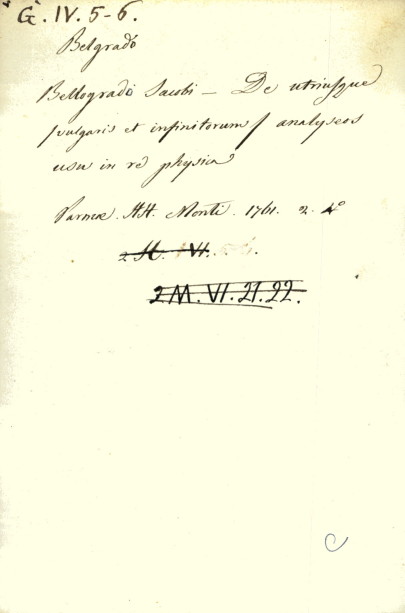 G. IV. 5-6.
Belgradò
Bellogradò Jacobi — De utriusque
/vulgaris et infinitorum/ analyseos
usu in re physica
Parmæ. HH. Monti. 1761. 2. 4°
2 H. VI.
2 M. VI. 21. 22.
C